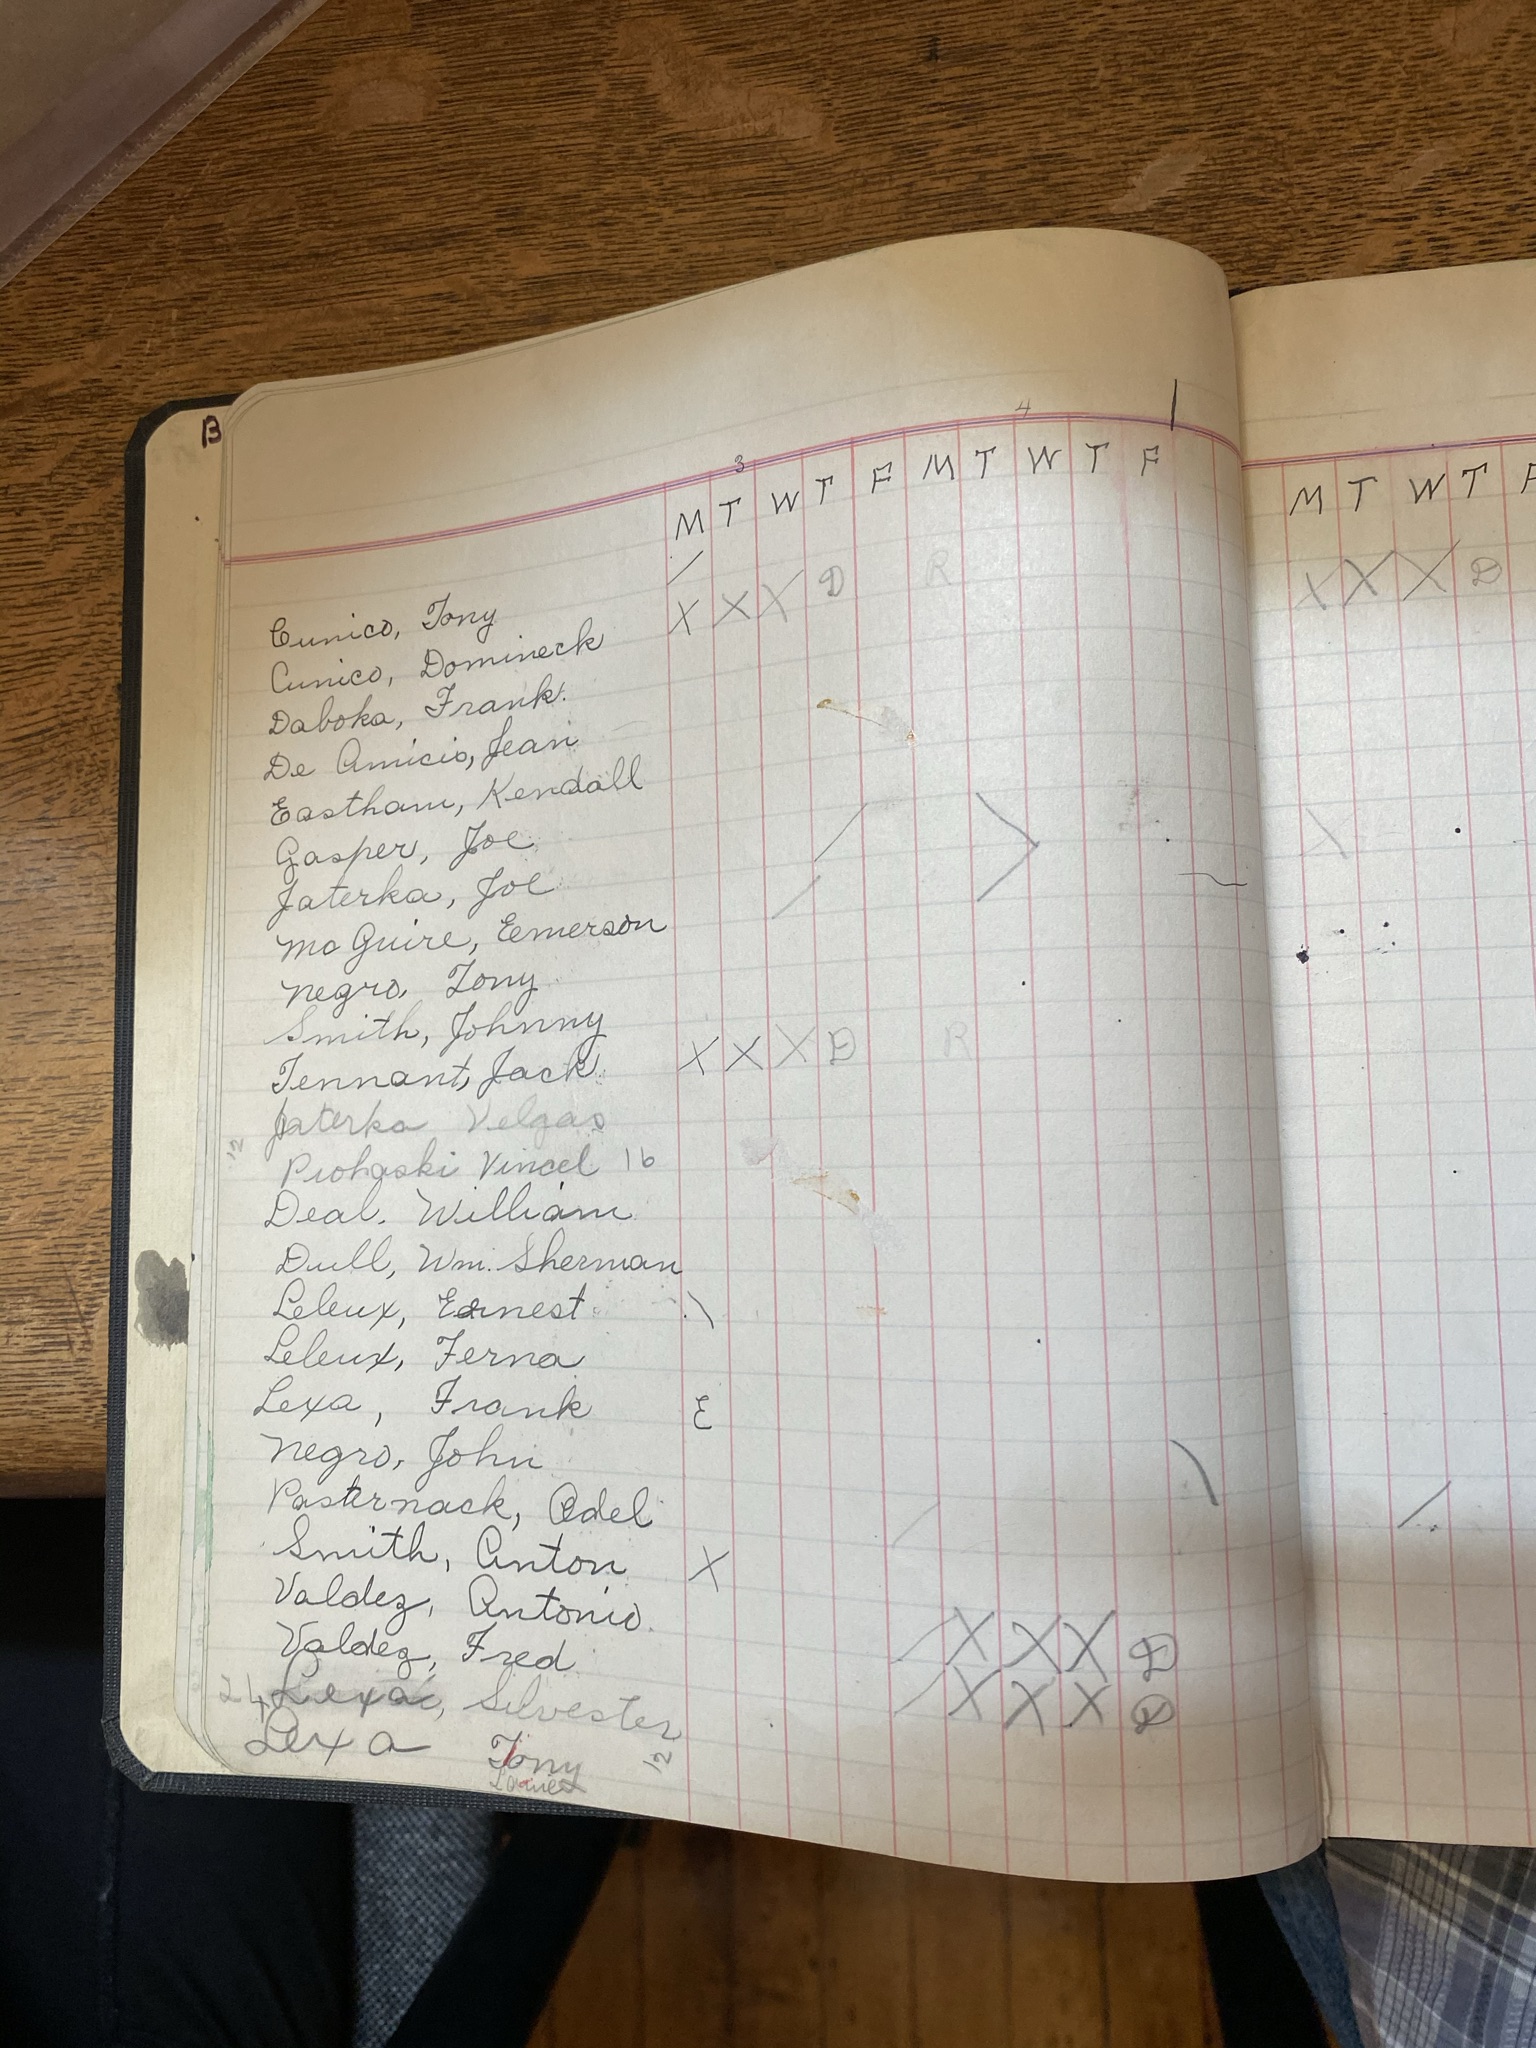 B
3 4
M T W T F M T W T F M T W T F
X X X D R X X X D
Cunico, Tony
Cunico, Domineck
Daboka, Frank.
De Amicis, Jean
Eastham, Kendall
Gasper, Joe
Jaterka, Joe
Mc Guire, Emerson
Negro, Tony
Smith, Johnny
Tennant, Jack X X X D R
Jaterka Velgas
12
Prohaski Vincel 16
Deal. William
Dull, Wm. Sherman
Leleux, Ernest
Leleux, Ferna
Lexa, Frank E
Negro, John
Pasternack, Adel
Smith, Anton X
Valdez, Antonio
Valdez, Fred X X X D
24 Lexa, Silvester X X X D
Lexa Tony 12